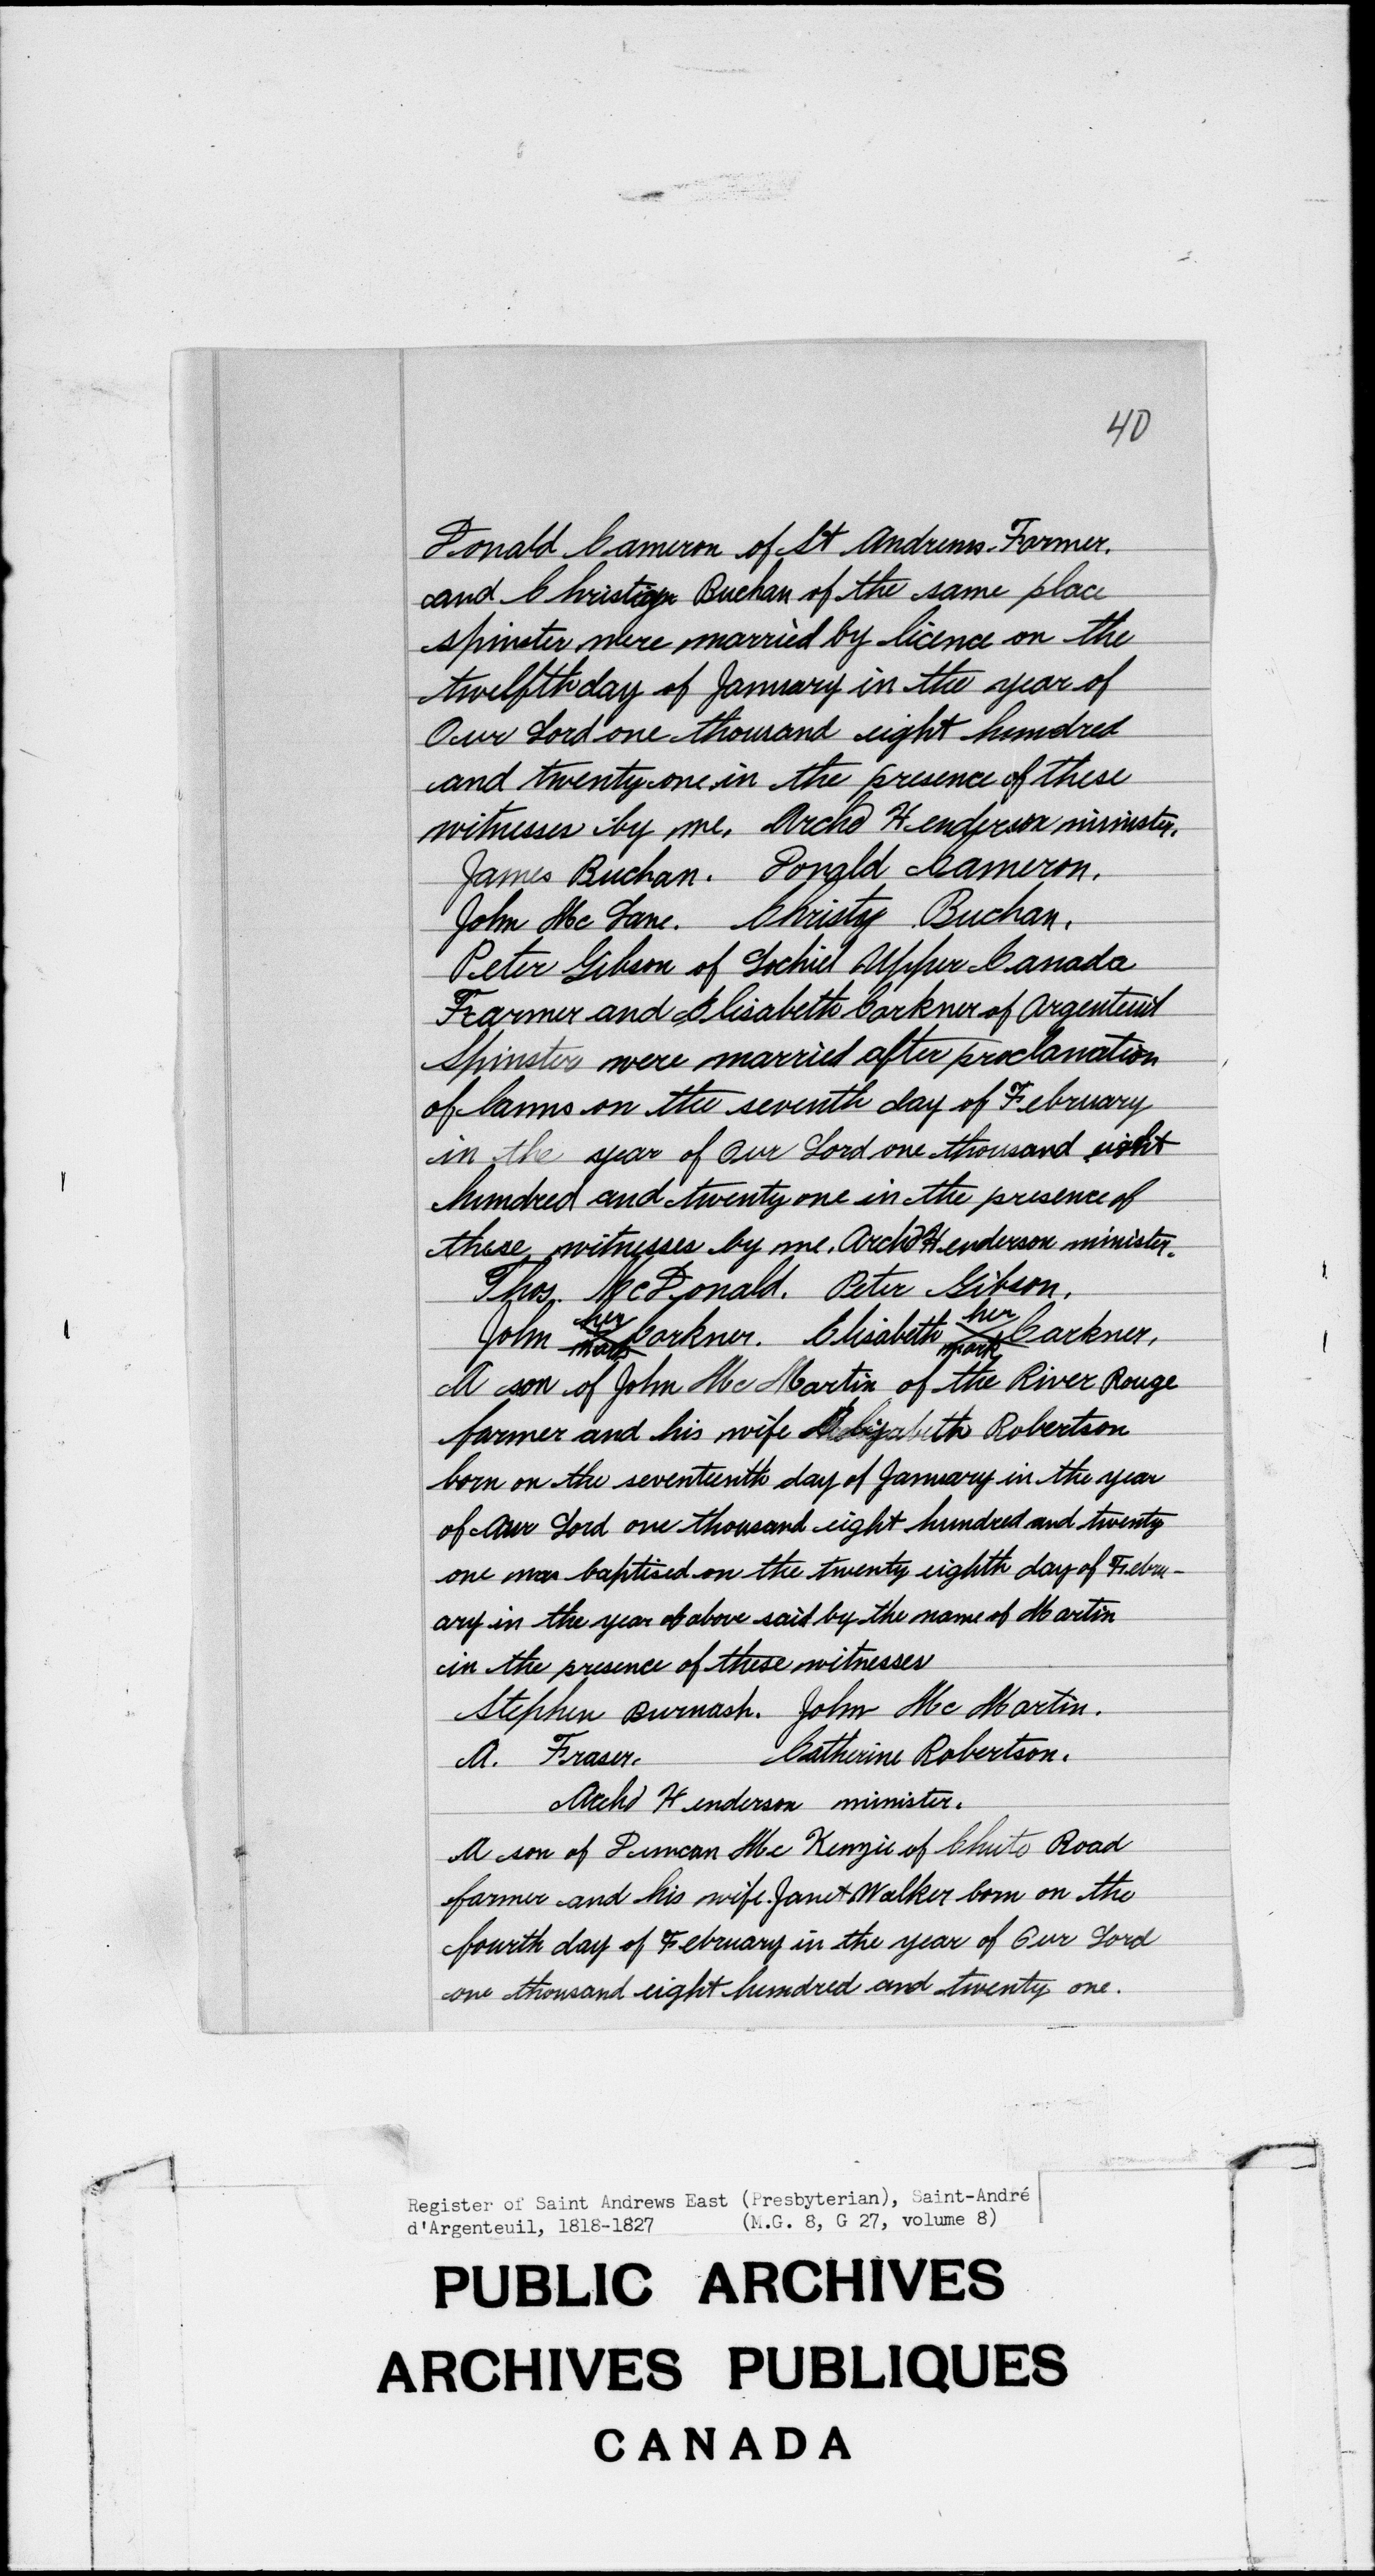 40
Donald Cameron of St Andrews Farmer.
and Christian Buchan of the same place
spinster were married by licence on the
twelfth day of January in the year of
Our Lord one thousand eight hundred
and twenty one in the presence of these
witnesses by me, Archd Henderson minister.
James Buchan. Donald Cameron.
John Mc Lane. Christy Buchan.
Peter Gibson of Lochiel Upper Canada
Farmer and Elisabeth Carkner of Argenteuil
Spinster were married after proclamation
of banns on the seventh day of February
in the year of Our Lord one thousand eight
hundred and twenty one in the presence of
these witnesses by me. Archd Henderson minister.
Thos. McDonald. Peter Gibson.
John her X mark Carkner. Elisabeth her X mark Carkner.
A son of John Mc Martin of the River Rouge
farmer and his wife Elizabeth Robertson
born on the seventeenth day of January in the year
of Our Lord one thousand eight hundred and twenty
one was baptised on the twenty eighth day of Febru-
ary in the year above said by the name of Martin
in the presence of these witnesses
Stephen Burnash. John Mc Martin.
A. Fraser. Catherine Robertson.
Archd Henderson minister.
A son of Duncan Mc Kenzie of Chute Road
farmer and his wife Janet Walker born on the
fourth day of February in the year of Our Lord
one thousand eight hundred and twenty one.
Register of Saint Andrews East (Presbyterian), Saint-André
d'Argenteuil, 1818-1827 (M.G. 8, G 27, volume 8)
PUBLIC ARCHIVES
ARCHIVES PUBLIQUES
CANADA